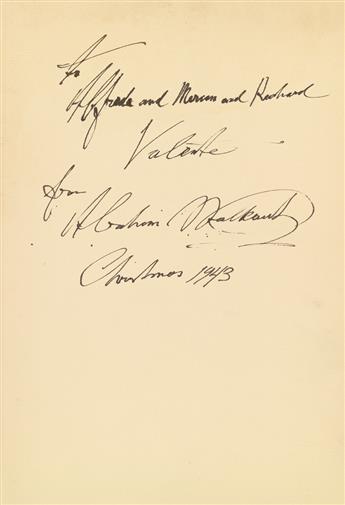 to
Alfreda and Mirian and Richard
Valente
from
Abraham Walkowitz
Christmas 1943